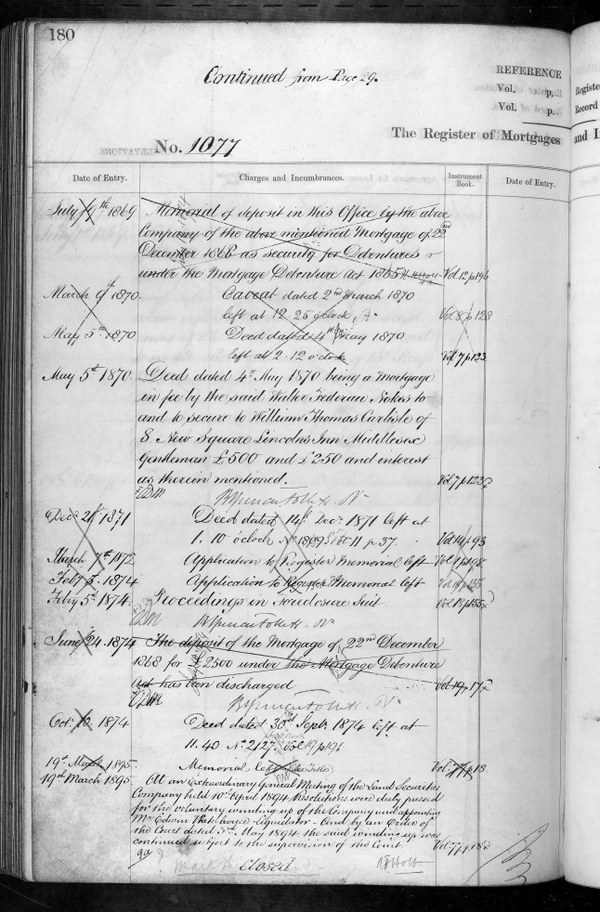 180
Continued from Page 29.
REFERENCE
Vol. p.
Vol. p.
Registe
Record
No. 1077
The Register of Mortgages
and I
Date of Entry.
Charges and Incumbrances.
Instrument Book.
Date of Entry.
July 9th 1869
Memorial of deposit in this Office by the above
Company of the above mentioned Mortgage of 22nd
December 1868 as security for Debentures
under the Mortgage Debenture Act 1865
Vol 12 p 196
March 9th 1870.
Caveat dated 2nd March 1870
left at 12.25 o'clock
Vol 8 p 128
May 5th 1870
Deed dated 4th May 1870
left at 2.12 o'clock
Vol 7 p 123
May 5th 1870.
Deed dated 4th May 1870 being a Mortgage
in fee by the said Walter Federan Nokes to
and to secure to William Thomas Carlisle of
8 New Square Lincolns Inn Middlesex
Gentleman £500 and £250 and interest
as therein mentioned.
Vol 7 p 123
Decr 21st 1871
Deed dated 14th Decr 1871 left at
1.10 o'clock No 1809 Vol 11 p 37.
Vol 14 p 93
March 7th 1872
Application to Register Memorial left
Vol 1 p 198
Feby 5. 1874
Application to Register Memorial left
Vol 18 p 155
Feby 5th 1874.
Proceedings in Foreclosure Suit
Vol 18 p 155
June 24 1874
The deposit of the Mortgage of 22nd December
1868 for £2500 under the Mortgage Debenture
Act has been discharged
Vol 19 p 17
Oct. 10 1874
Deed dated 30th Septr 1874 left at
11.40 No 2127. Vol 19 p 191
19th March 1895.
Memorial left
Vol 77 p 18
19th March 1895.
At an Extraordinary General Meeting of the Land Securities
Company held 10th April 1894 Resolutions were duly passed
for the voluntary winding up of the Company and appointing
Mr Edwin Waterhouse Liquidator - And by an Order of
the Court dated 3rd May 1894 the said winding up was
continued subject to the supervision of the Court
Vol 77 p 18
Closed
R Holt